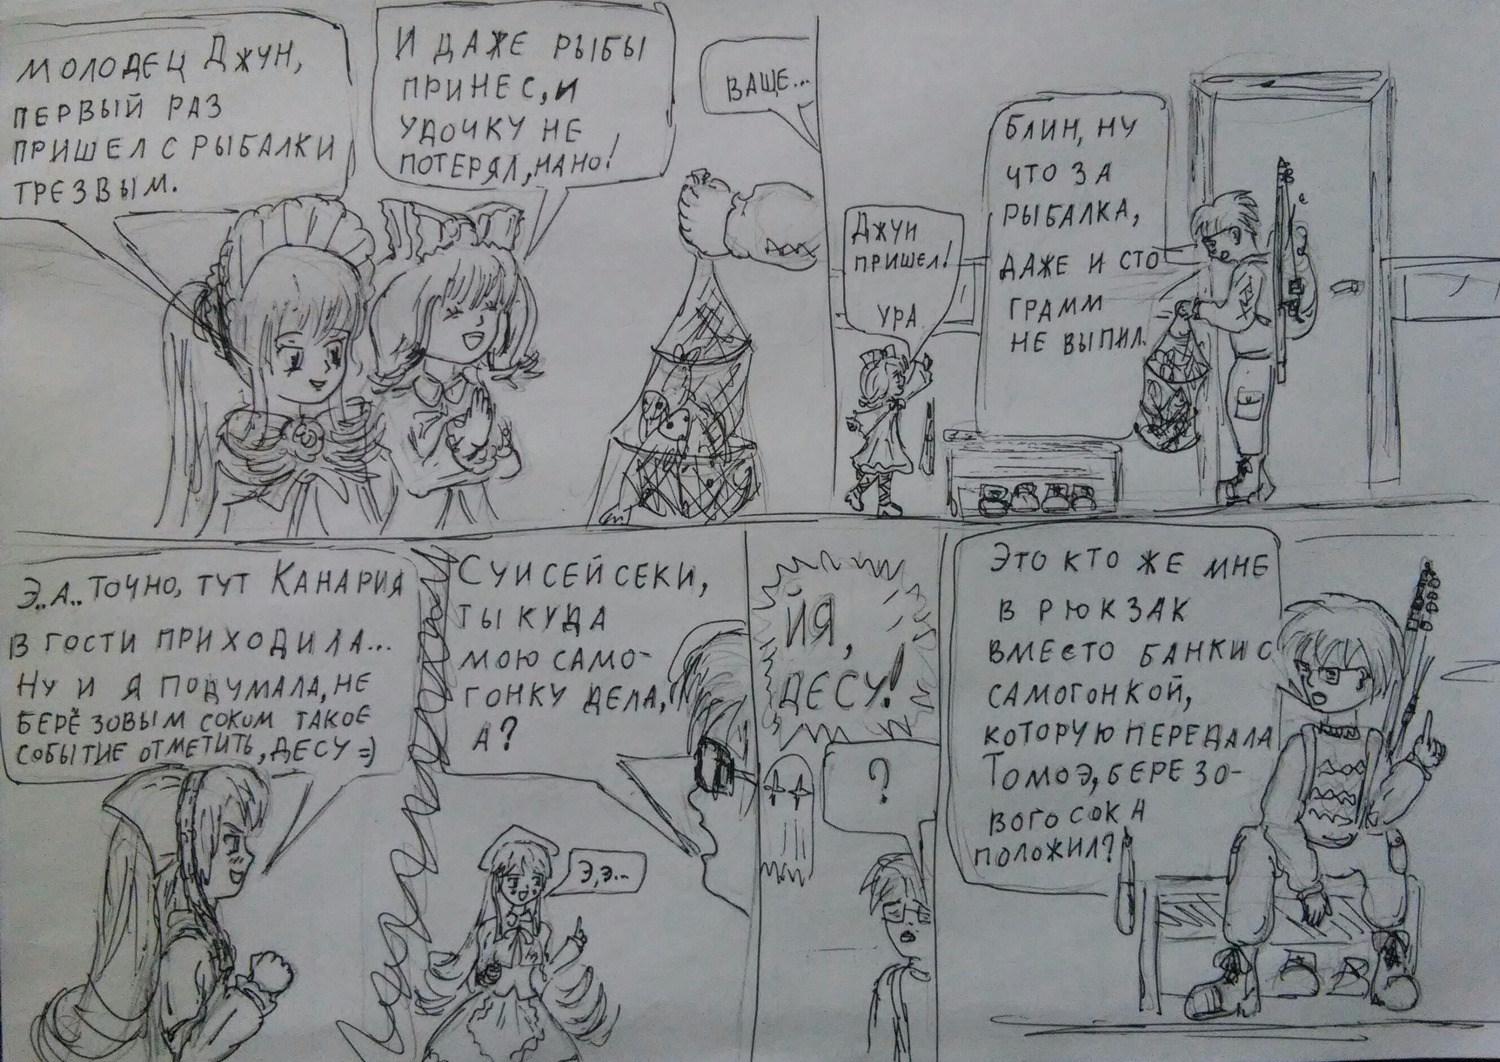 БЛИН, НУ
ЧТО ЗА
РЫБАЛКА,
ДАЖЕ И СТО
ГРАММ
НЕ ВЫПИЛ.
ДЖУН
ПРИШЕЛ!
УРА
ВАЩЕ...
МОЛОДЕЦ ДЖУН,
ПЕРВЫЙ РАЗ
ПРИШЕЛ С РЫБАЛКИ
ТРЕЗВЫМ.
И ДАЖЕ РЫБЫ
ПРИНЕС, И
УДОЧКУ НЕ
ПОТЕРЯЛ, НАНО!
ЭТО КТО ЖЕ МНЕ
В РЮКЗАК
ВМЕСТО БАНКИ С
САМОГОНКОЙ,
КОТОРУЮ ПЕРЕДАЛА
ТОМОЭ, БЕРЕЗО-
ВОГО СОКА
ПОЛОЖИЛ?
ЙЯ,
ДЕСУ!
?
СУИСЕЙСЕКИ,
ТЫ КУДА
МОЮ САМО-
ГОНКУ ДЕЛА,
А?
Э,Э...
Э..А.. ТОЧНО, ТУТ КАНАРИЯ
В ГОСТИ ПРИХОДИЛА...
НУ И Я ПОДУМАЛА, НЕ
БЕРЁЗОВЫМ СОКОМ ТАКОЕ
СОБЫТИЕ ОТМЕТИТЬ, ДЕСУ =)